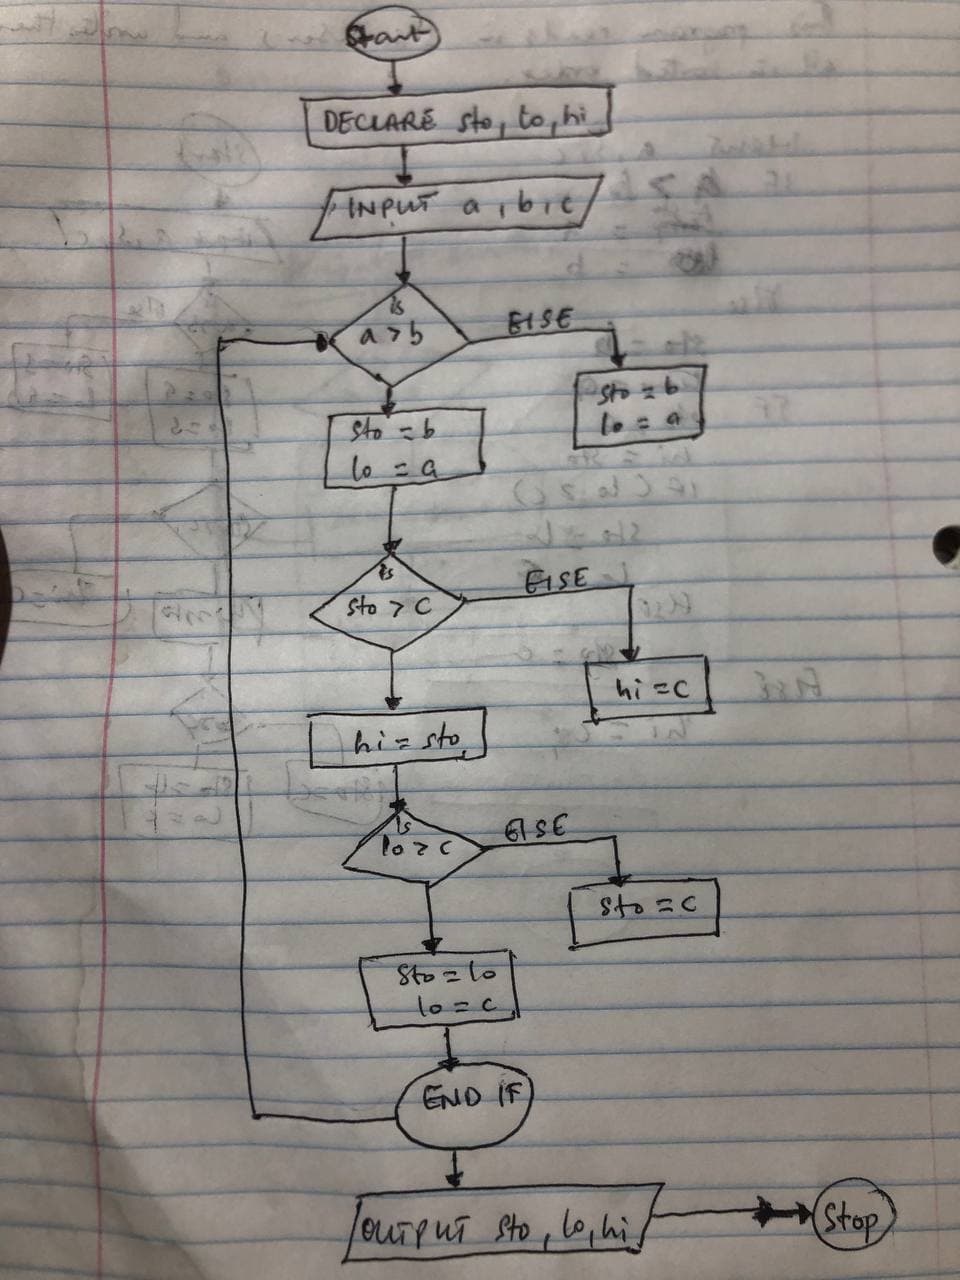 Start
DECLARE sto, lo, hi
INPUT a, b, c
is
a > b
ELSE
sto = b
lo = a
sto = b
lo = a
is
sto > c
ELSE
hi = c
hi = sto
Is
lo > c
ELSE
sto = c
sto = lo
lo = c
END IF
OUTPUT sto, lo, hi
Stop